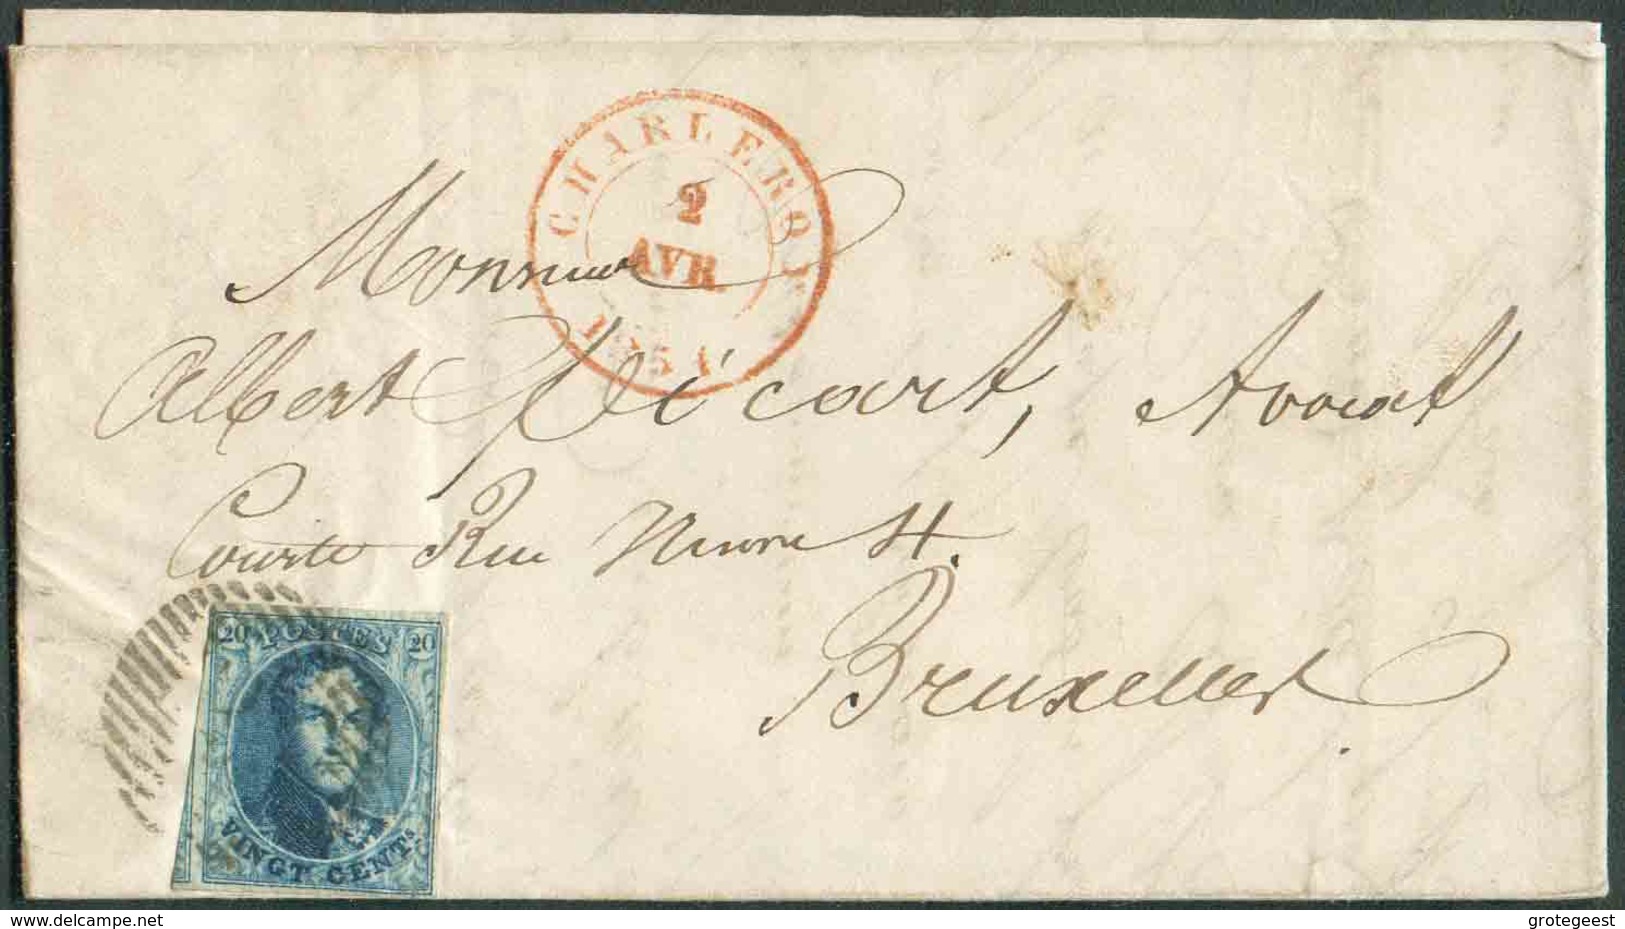 CHARLEROY
2
AVR.
1851
Monsieur
Albert Décart, Avocat
Courte Rue Neuve 4.
Bruxelles
20 POSTES 20
VINGT CENTS
www.delcampe.net
grotegeest